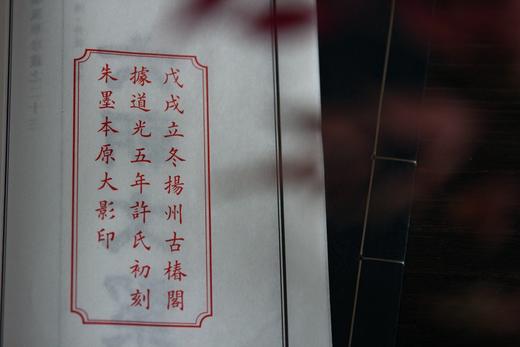 戊戌立冬揚州古椿閣
據道光五年許氏初刻
朱墨本原大影印